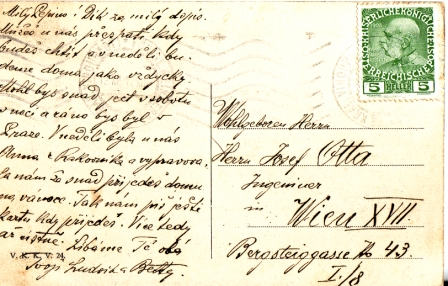 Milý Pepíno! Dík za milý dopis.
Můžeš u nás přespati, kdy
budeš chtít a v neděli bu-
deme doma jako vždycky.
Mohl bys snad ject v sobotu
v noci a ráno bys byl v
Praze. V neděli byla u nás
Anna z Rakovníka a vypravova-
la nám že snad přijedeš domu
na vánoce. Tak nám piš ještě
kartu kdy přijedeš. Více tedy
až ústně. Líbáme Tě oba
Tvoji Ludvík a Betty.
V. K. K. V. 24
KAISERLICHE KÖNIGLICHE ÖSTERREICHISCHE POST
5 HELLER 5
Wohlgeboren Herrn
Herrn Josef Otta
Ingenieur
in Wien XVII.
Bergsteiggasse No 43.
I./8